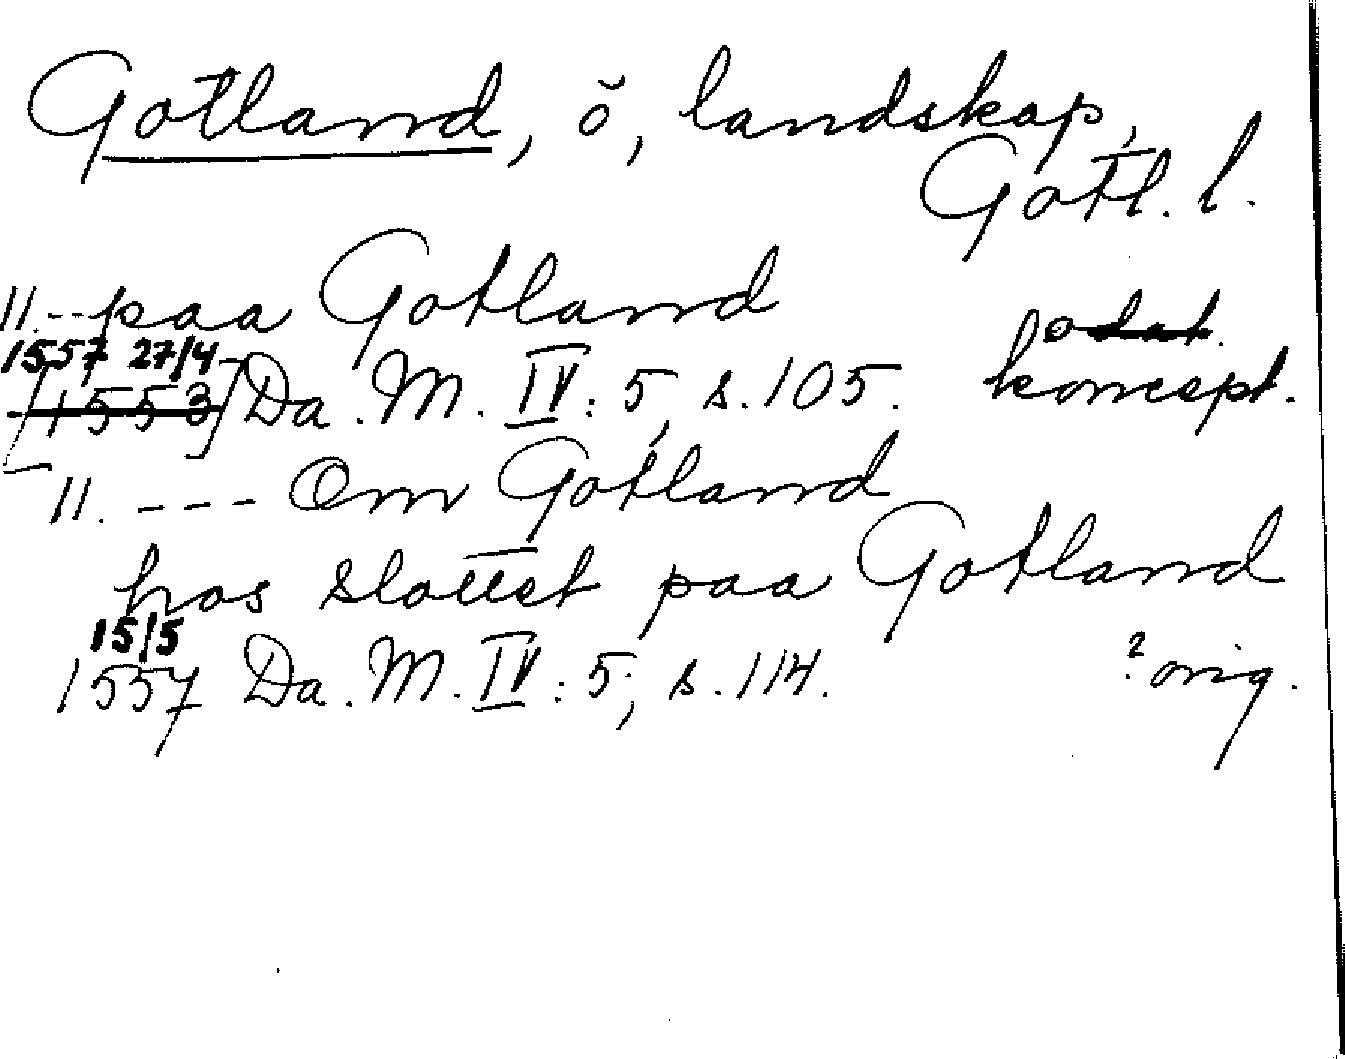 Gotland, ö, landskap,
Gotl. l.
11. -- paa Gotland odat.
1557 27/4
[1553] Da. M. IV: 5, s. 105. koncept.
11. --- Om Gotland
hos slottet paa Gotland
15/5
1557 Da. M. IV: 5, s. 114. ? orig.